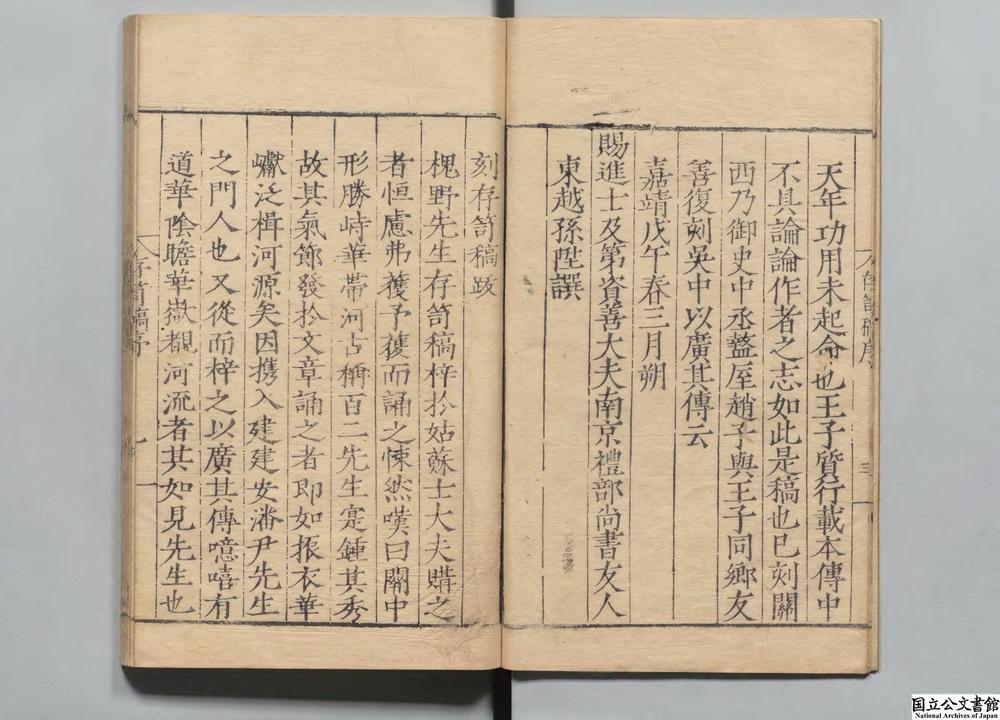 天年功用未起命也王子質行載本傳中
不具論論作者之志如此是稿也已刻關
西乃御史中丞盩厔趙子與王子同鄉友
善復刻吳中以廣其傳云
嘉靖戊午春三月朔
賜進士及第資善大夫南京禮部尚書友人
東越孫陞譔
三
刻存笥稿跋
槐野先生存笥稿梓扵姑蘇士大夫購之
者恒慮弗獲予獲而誦之悚然嘆曰關中
形勝峙華帶河古稱百二先生寔鍾其秀
故其氣節發扵文章誦之者即如振衣華
巘泛楫河源矣因携入建建安潘尹先生
之門人也又從而梓之以廣其傳噫嘻有
道華陰瞻華嶽覩河流者其如見先生也
存笥稿序
国立公文書館
National Archives of Japan